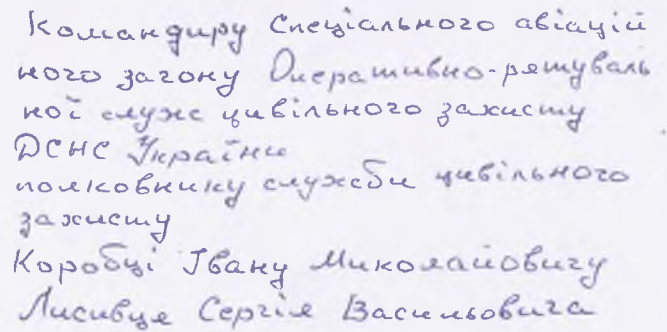 Командиру Спеціального авіацій
ного загону Оперативно-рятуваль
ної служ цивільного захисту
ДСНС України
полковнику служби цивільного
захисту
Коробці Івану Миколайовичу
Лисивця Сергія Васильовича